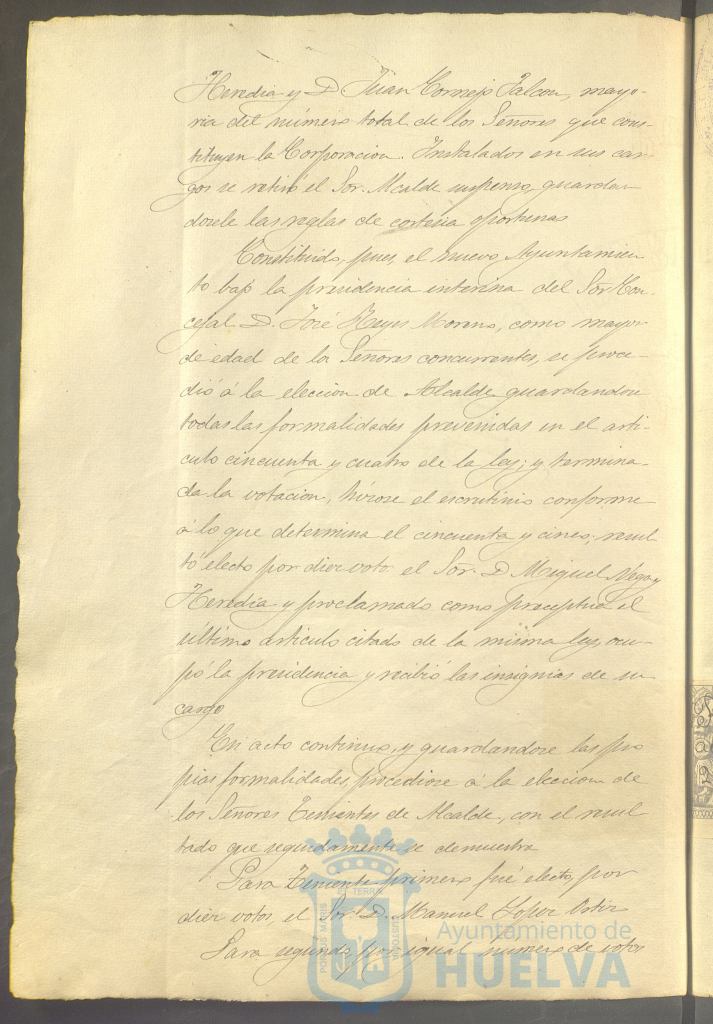 Heredia y D. Juan Cornejo Falcon, mayo-
ria del número total de los Señores que cons-
tituyen la Corporacion. Instalados en sus car-
gos se retiró el Sor. Alcalde suspenso, guardan
dosele las reglas de cortesia oportunas
Constituido, pues, el nuevo Ayuntamien
to bajo la presidencia interina del Sor Con-
cejal D. José Reyes Moreno, como mayor
de edad de los Señores concurrentes, se proce-
dió á la eleccion de Alcalde guardandose
todas las formalidades prevenidas en el arti-
culo cincuenta y cuatro de la ley; y termina-
da la votacion, hízose el escrutinio conforme
á lo que determina el cincuenta y cinco; resul
tó electo por diez votos el Sor. D. Miguel y
Heredia y proclamado como preceptua el
último articulo citado de la misma ley, ocu-
pó la presidencia y recibió las insignias de su
cargo
En acto continuo, y guardandose las pro
pias formalidades, procediose á la eleccion de
los Señores Tenientes de Alcalde, con el resul
tado que seguidamente se demuestra
Para Teniente primero fué electo, por
diez votos, el Sor. D. Manuel Lopez Ortiz
Para segundo, por igual numero de votos
PORTUS MARIS ET TERRAE CUSTODIA
Ayuntamiento de
HUELVA